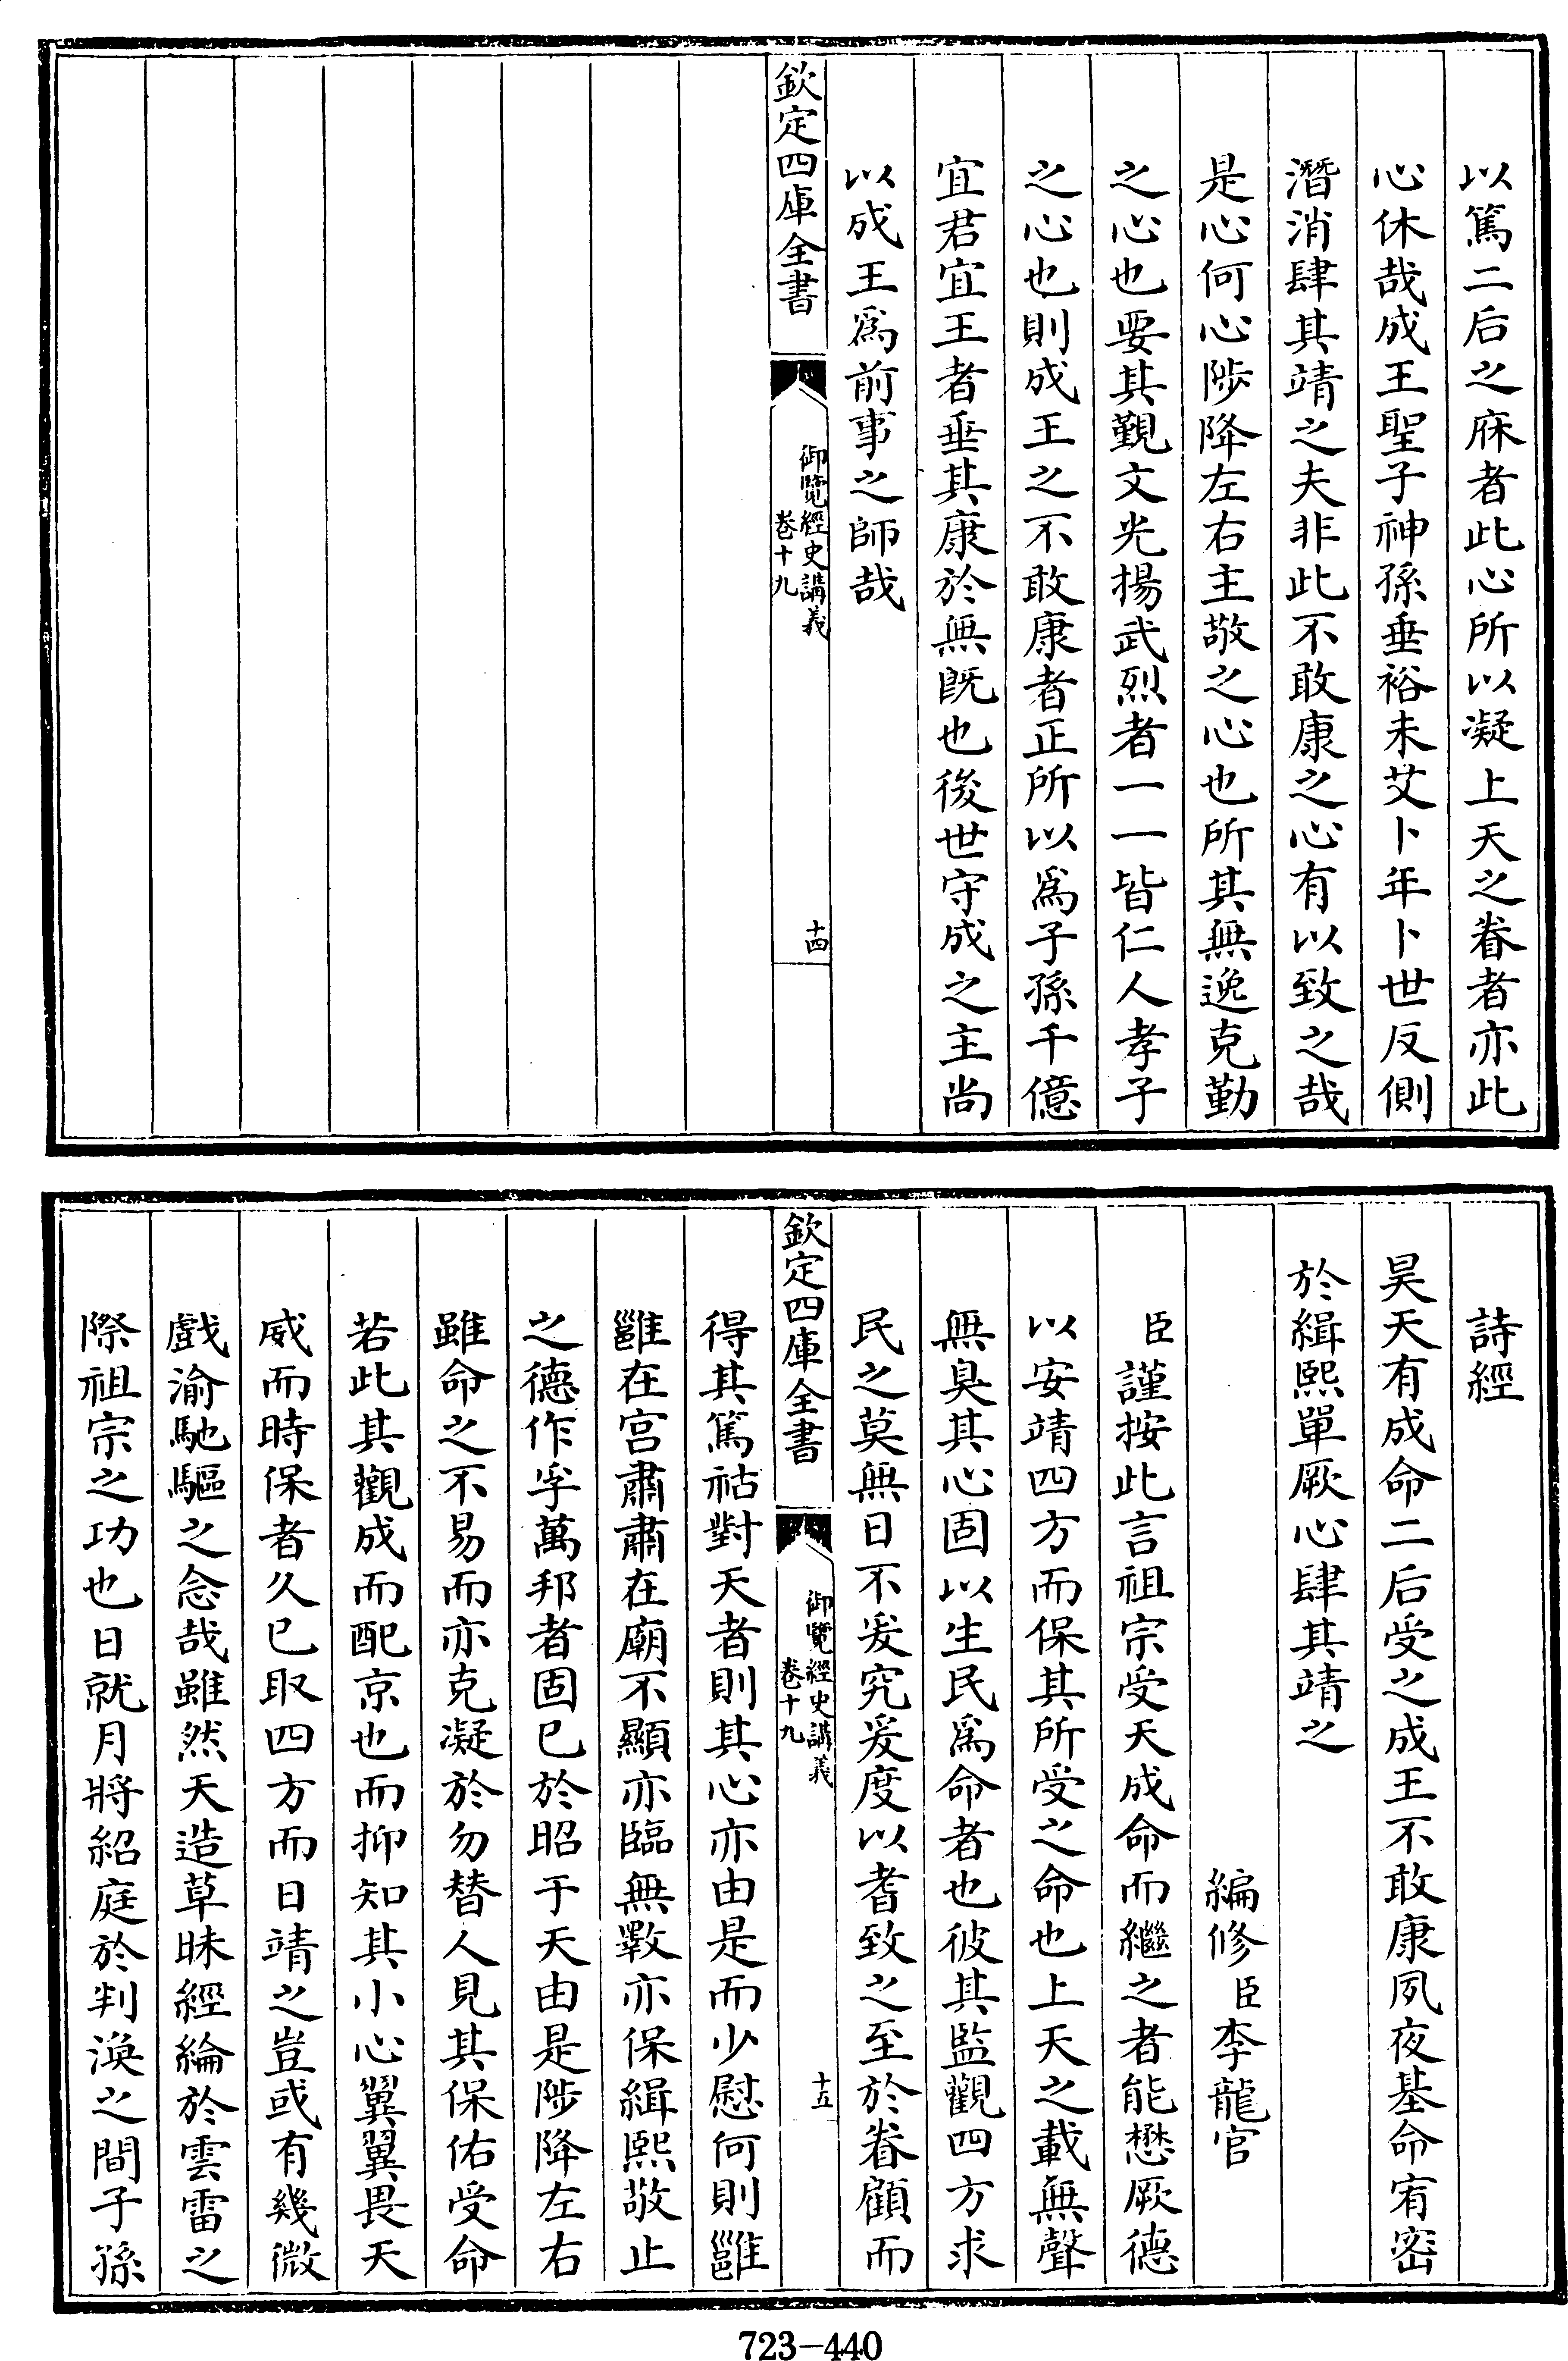 以篤二后之庥者此心所以凝上天之眷者亦此
心休哉成王聖子神孫垂裕未艾卜年卜世反側
潛消肆其靖之夫非此不敢康之心有以致之哉
是心何心陟降左右主敬之心也所其無逸克勤
之心也要其覲文光揚武烈者一一皆仁人孝子
之心也則成王之不敢康者正所以爲子孫千億
宜君宜王者垂其康於無旣也後世守成之主尚
以成王爲前事之師哉
欽定四庫全書
御覽經史講義
卷十九
十四
詩經
昊天有成命二后受之成王不敢康夙夜基命宥密
於緝熙單厥心肆其靖之
編修臣李龍官
臣謹按此言祖宗受天成命而繼之者能懋厥德
以安靖四方而保其所受之命也上天之載無聲
無臭其心固以生民爲命者也彼其監觀四方求
民之莫無日不爰究爰度以耆致之至於眷顧而
欽定四庫全書
御覽經史講義
卷十九
十五
得其篤祜對天者則其心亦由是而少慰何則雝
雝在宫肅肅在廟不顯亦臨無斁亦保緝熙敬止
之德作孚萬邦者固已於昭于天由是陟降左右
雖命之不易而亦克凝於勿替人見其保佑受命
若此其觀成而配京也而抑知其小心翼翼畏天
威而時保者久已取四方而日靖之豈或有幾微
戲渝馳驅之念哉雖然天造草昧經綸於雲雷之
際祖宗之功也日就月將紹庭於判渙之間子孫
723-440